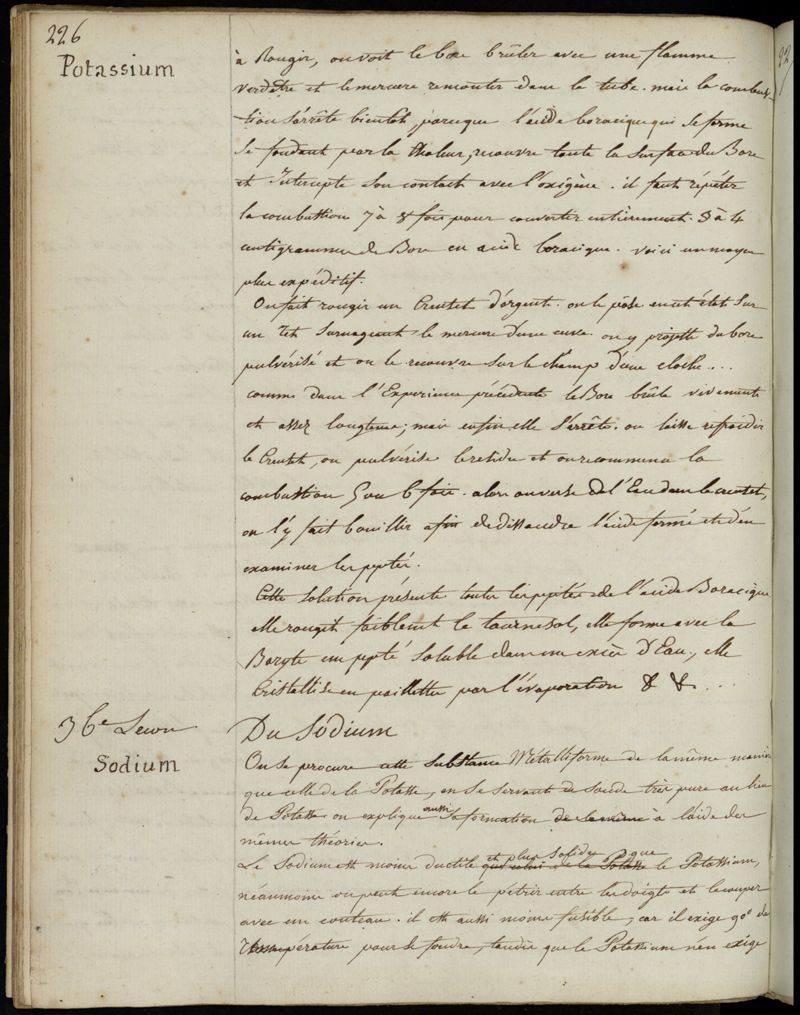 226
Potassium
à Rougir, on voit le bore brûler avec une flamme
verdâtre et le mercure remonter dans le tube. mais la combus-
-tion s'arrête bientôt, parceque l'acide boracique qui se forme
se fondant par la chaleur, recouvre toute la surface du Bore
et Intercepte son contact avec l'oxigène. il faut répéter
la combustion 7 à 8 fois pour convertir entièrement 3 à 4
centigrammes de Bore en acide boracique. voici un moyen
plus expéditif.
On fait rougir un Creuset d'argent. on le pose en cet état sur
un têt surnageant le mercure d'une cuve. on y projette du bore
pulvérisé et on le recouvre sur le champ d'une cloche....
comme dans l'Experience précédente le Bore brûle vivement
et assez longtems; mais enfin elle s'arrête. on laisse refroidir
le Creuset, on pulvérise le résidu et on recommence la
combustion 5 ou 6 fois. alors on verse de l'Eau dans le creuset,
on l'y fait bouillir afin de dissoudre l'acide formé et d'en
examiner les ppté.
Cette solution présente toutes les pptés de l'acide Boracique
elle rougit faiblement le tournesol, elle forme avec la
Baryte un ppté soluble dans un excès d'Eau, elle
Cristallise en paillettes par l'évaporation & &...
36e Lecon
Du Sodium
Sodium
On se procure cette substance Métalliforme de la même manière
que celle de la Potasse, en se servant de soude très pure au lieu
de Potasse on explique aussi sa formation de la même à l'aide des
mêmes théories.
Le Sodium est moins ductile et plus solide que que celui de la Potasse le Potassium,
néanmoins on peut encore le pétrir entre les doigts et le couper
avec un couteau. il est aussi moins fusible, car il exige 90° de
Température pour se fondre, tandis que le Potassium n'en exige